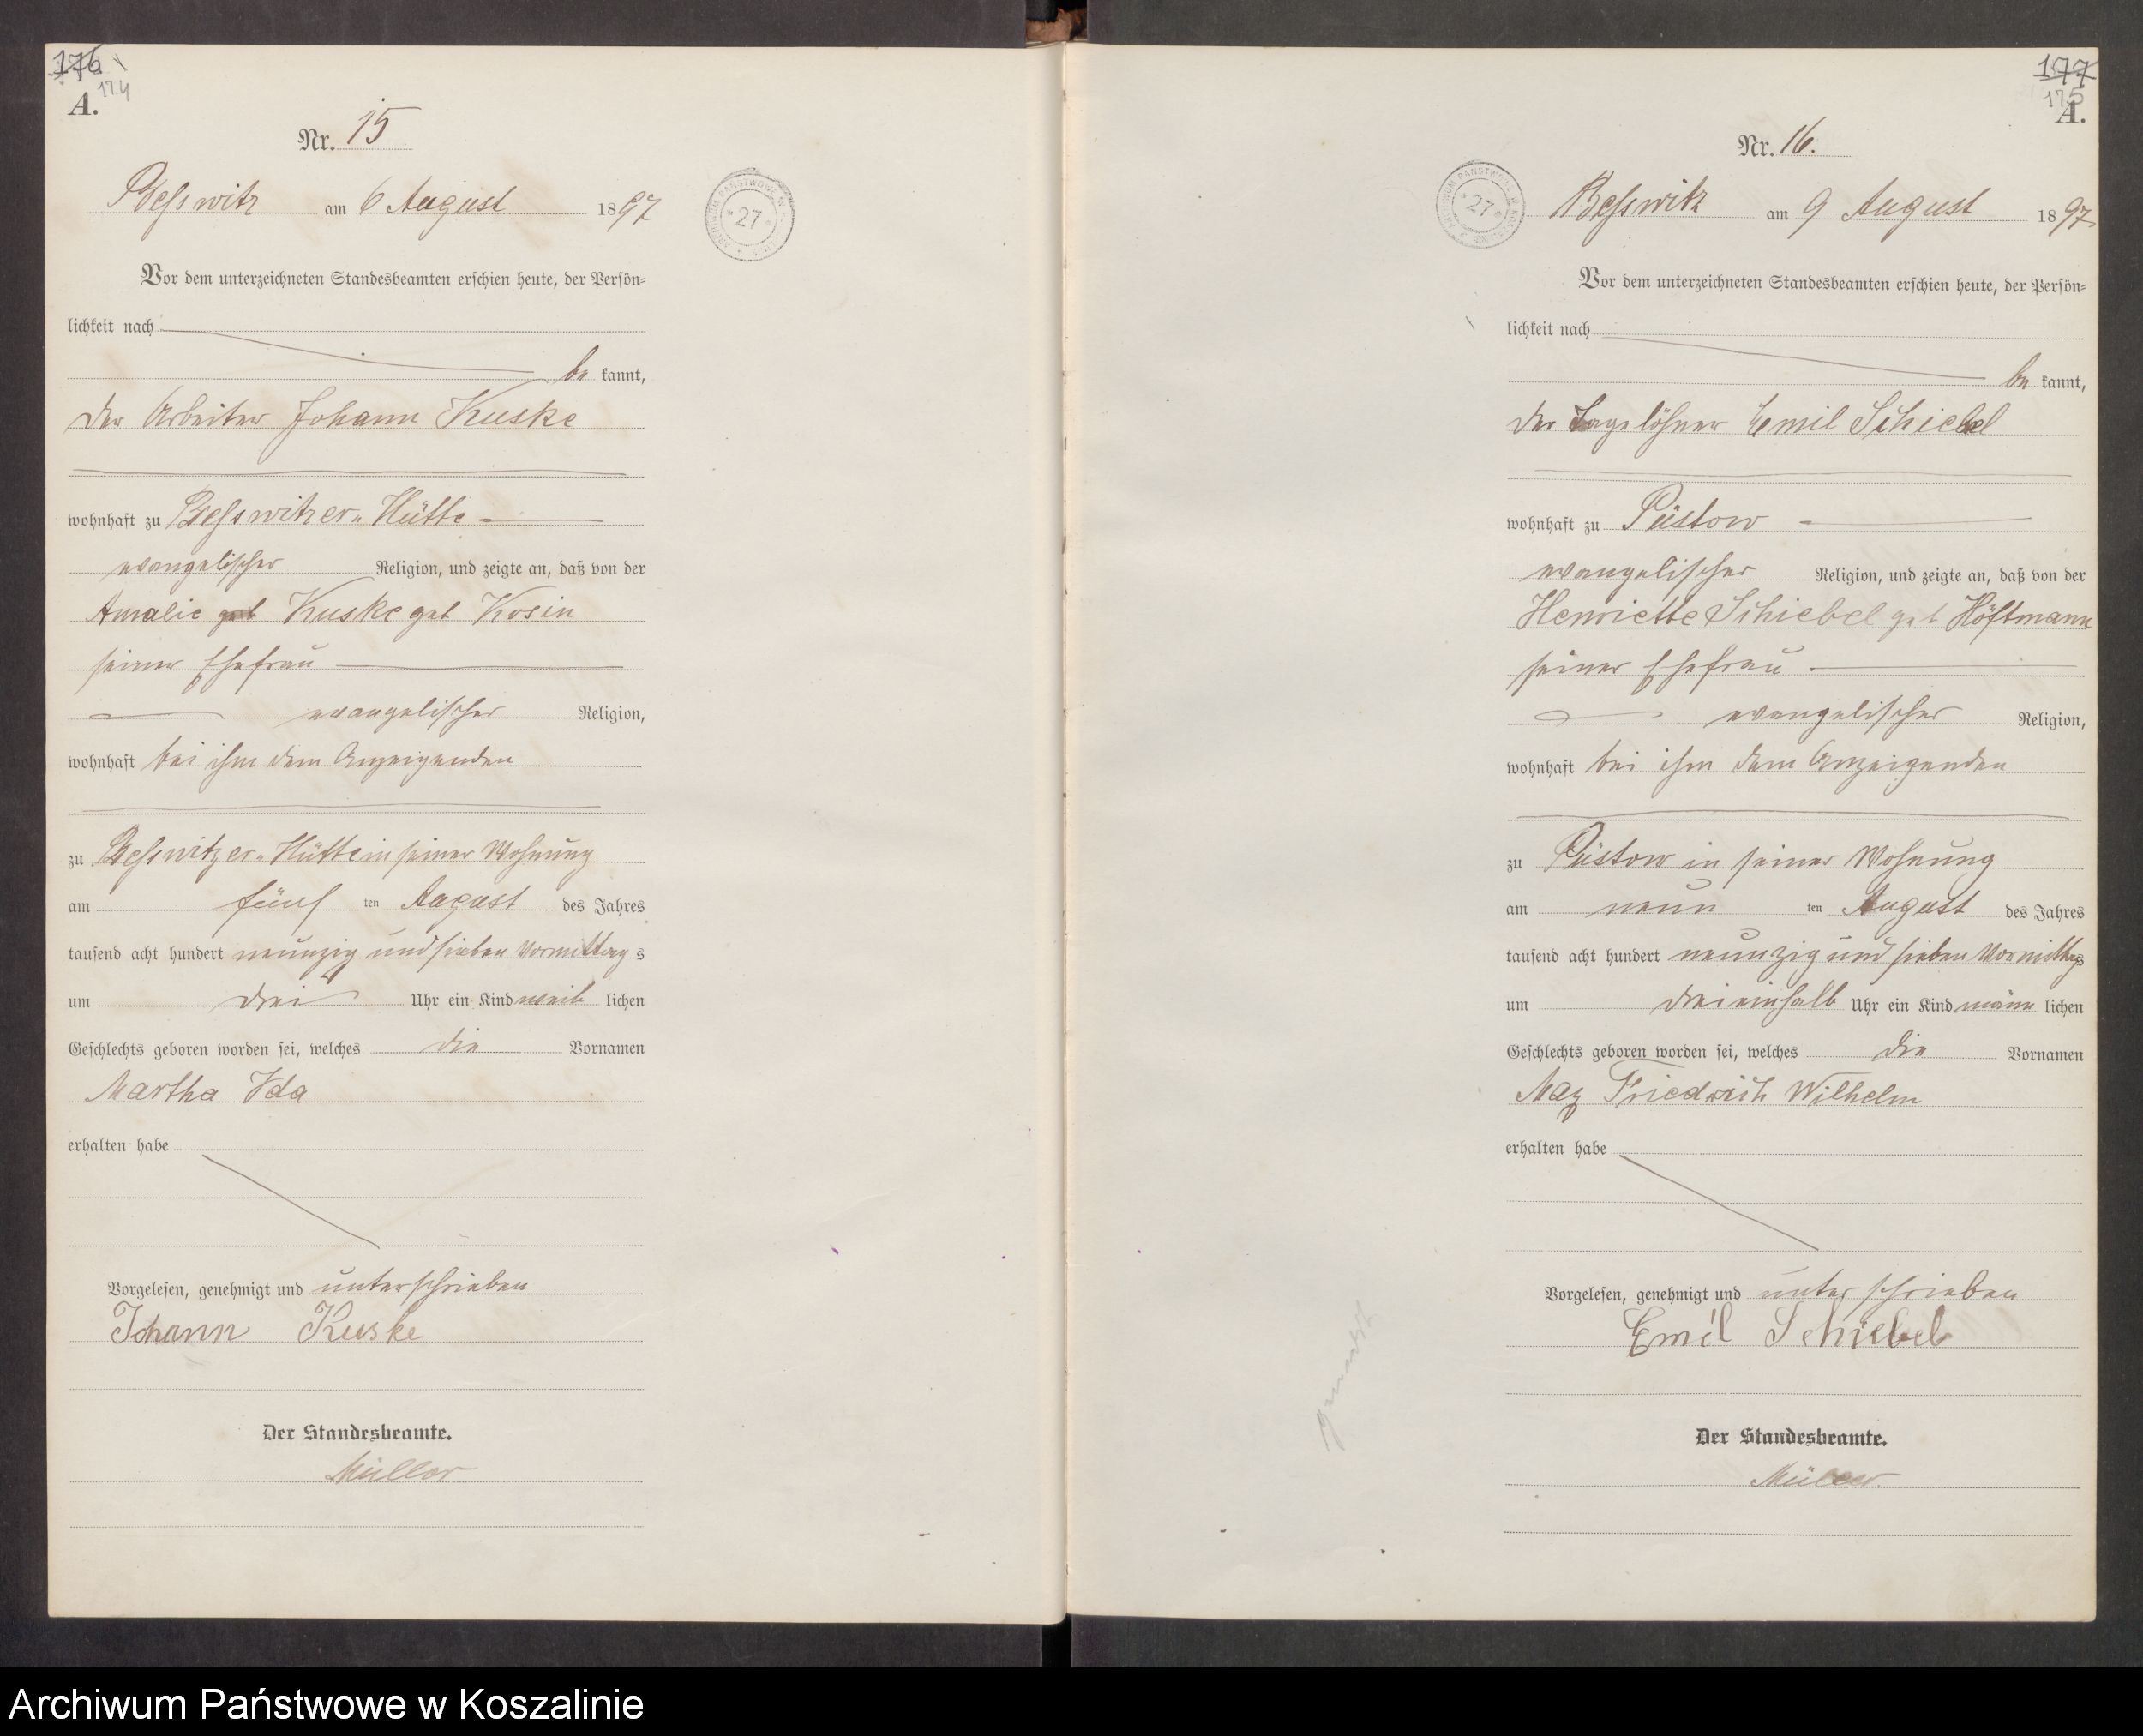 176
174
A.
Nr. 15
Besswitz am 6 August 1897
Vor dem unterzeichneten Standesbeamten erschien heute, der Persön-
lichkeit nach
be kannt,
der Arbeiter Johann Kuske
wohnhaft zu Besswitzer-Hütte
evangelischer Religion, und zeigte an, daß von der
Amalie geb Kuske geb Kosin
seiner Ehefrau
evangelischer Religion,
wohnhaft bei ihm dem Anzeigenden
zu Besswitzer-Hütte in seiner Wohnung
am fünf ten August des Jahres
tausend acht hundert neunzig und sieben Vormittag s
um drei Uhr ein Kind weib lichen
Geschlechts geboren worden sei, welches die Vornamen
Martha Ida
erhalten habe
Vorgelesen, genehmigt und unterschrieben
Johann Kuske
Der Standesbeamte.
Müller
27
177
175
A.
Nr. 16.
ARCHIWUM PAŃSTWOWE W
27
Besswitz am 9 August 1897
Vor dem unterzeichneten Standesbeamten erschien heute, der Persön-
lichkeit nach
be kannt,
der Tagelöhner Emil Schiebel
wohnhaft zu Püstow
evangelischer Religion, und zeigte an, daß von der
Henriette Schiebel geb Höftmann
seiner Ehefrau
evangelischer Religion,
wohnhaft bei ihm dem Anzeigenden
zu Püstow in seiner Wohnung
am neun ten August des Jahres
tausend acht hundert neunzig und sieben Vormittags
um dreieinhalb Uhr ein Kind männ lichen
Geschlechts geboren worden sei, welches die Vornamen
Max Friedrich Wilhelm
erhalten habe
Vorgelesen, genehmigt und unterschrieben
Emil Schiebel
Der Standesbeamte.
Müller
Archiwum Państwowe w Koszalinie